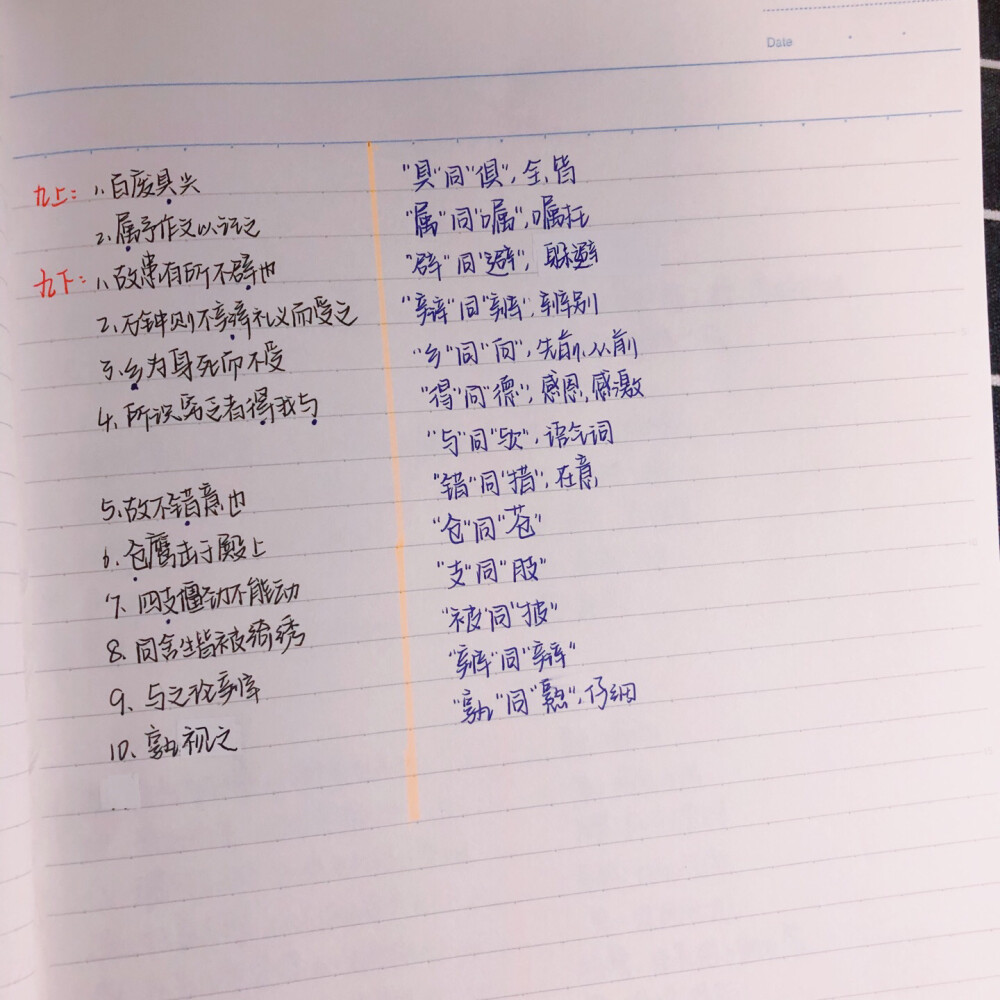 Date
九上: 1、百废具兴 "具"同"俱",全、皆
2、属予作文以记之 "属"同"嘱",嘱托
九下: 1、故患有所不辟也 "辟"同"避",躲避
2、万钟则不辩礼义而受之 "辩"同"辨",辨别
3、乡为身死而不受 "乡"同"向",先前、从前
4、所识穷乏者得我与 "得"同"德",感恩,感激
"与"同"欤",语气词
5、故不错意也 "错"同"措",在意
6、仓鹰击于殿上 "仓"同"苍"
7、四支僵动不能动 "支"同"肢"
8、同舍生皆被绮绣 "被"同"披"
9、与之论辨 "辨"同"辩"
10、孰视之 "孰"同"熟",仔细